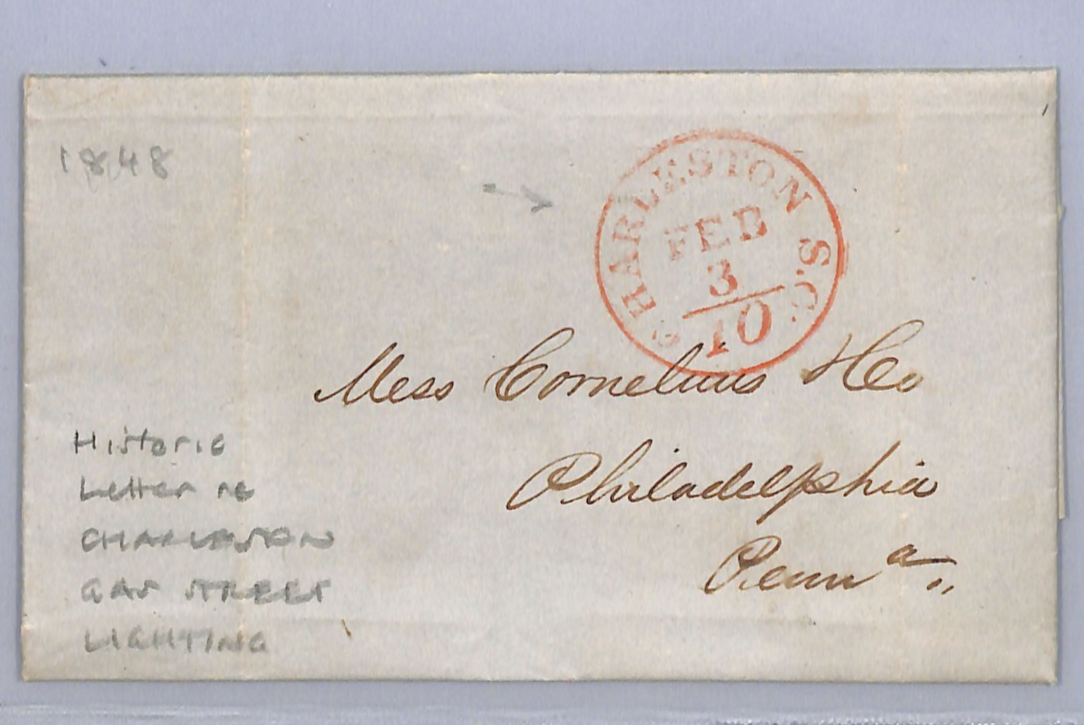 1848
CHARLESTON S.C.
FEB
3
10
Mess Cornelius & Co
Philadelphia
Penn a
Historic
Letter re
CHARLESTON
GAS STREET
LIGHTING